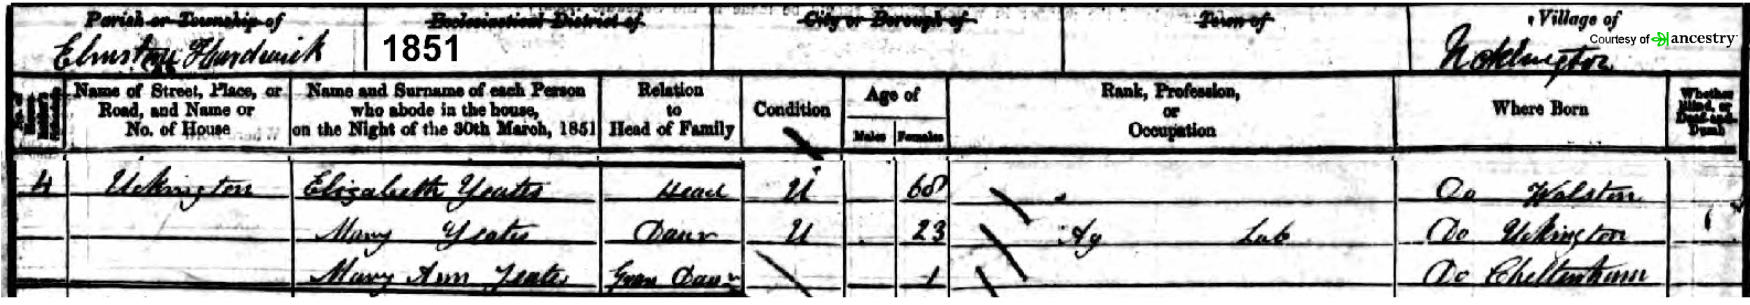 Parish or Township of Ecclesiastical District of City or Borough of Town of Village of
Elmstone Hardwick 1851 Uckington
Courtesy of ancestry
Name of Street, Place, or Road, and Name or No. of House
Name and Surname of each Person who abode in the house, on the Night of the 30th March, 1851
Relation to Head of Family
Condition
Age of
Males Females
Rank, Profession, or Occupation
Where Born
Whether Blind, or Deaf-and-Dumb
4 Uckington Elizabeth Yeates Head U 68 Do
Mary Yeates Daur U 23 Ag Lab Do Uckington
Mary Ann Yeates Gran Daur 1 Do Cheltenham